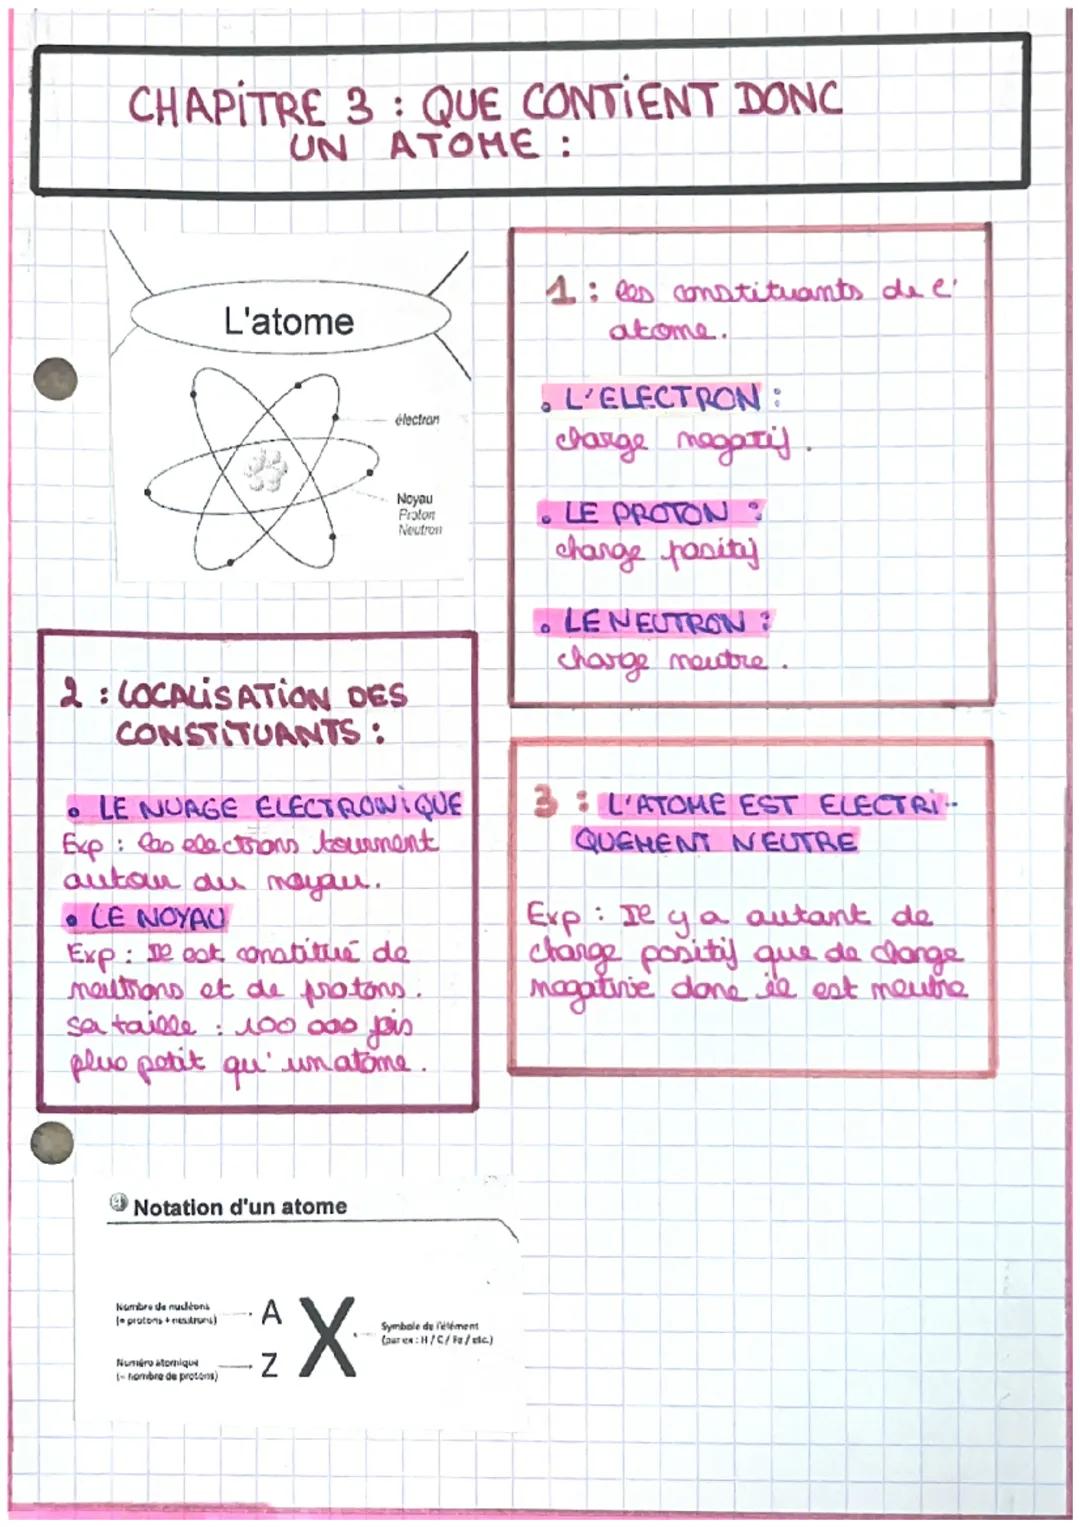 CHAPITRE 3 : QUE CONTIENT DONC
UN ATOME :
L'atome
électron
Noyau
Proton
Neutron
1 : les constituants de l'
atome.
• L'ELECTRON :
charge negatif.
• LE PROTON :
charge positif
• LE NEUTRON :
charge neutre.
2 : LOCALISATION DES
CONSTITUANTS :
• LE NUAGE ELECTRONIQUE
Exp : les electrons tournent
autour du noyau.
• LE NOYAU
Exp : Il est constitué de
neutrons et de protons.
sa taille : 100 000 fois
plus petit qu'un atome.
3 : L'ATOME EST ELECTRI-
QUEMENT NEUTRE
Exp : Il y a autant de
charge positif que de charge
négative donc il est neutre
Notation d'un atome
Nombre de nucléons
(= protons + neutrons)
A
X
Symbole de l'élément
(par ex : H / C / Fe / etc.)
Numéro atomique
(= nombre de protons)
Z